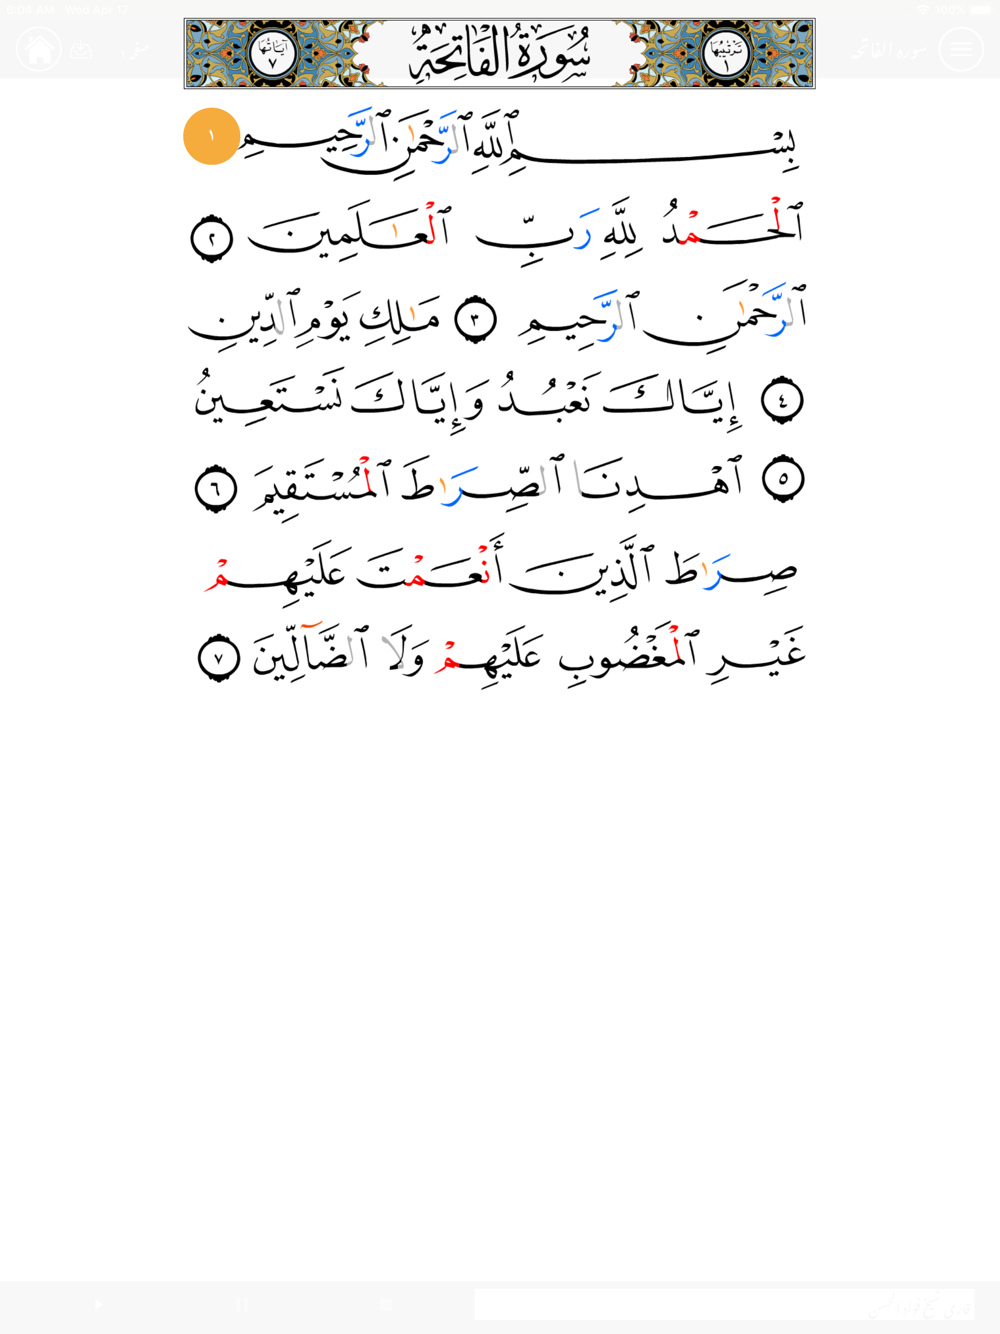 6:04 AM Wed Apr 17 100%
سورة الفاتحة
ترتيبها ١ سُورَةُ الْفَاتِحَةِ آياتها ٧
بِسْمِ ٱللَّهِ ٱلرَّحْمَٰنِ ٱلرَّحِيمِ ١
ٱلْحَمْدُ لِلَّهِ رَبِّ ٱلْعَٰلَمِينَ ٢
ٱلرَّحْمَٰنِ ٱلرَّحِيمِ ٣ مَٰلِكِ يَوْمِ ٱلدِّينِ
٤ إِيَّاكَ نَعْبُدُ وَإِيَّاكَ نَسْتَعِينُ
٥ ٱهْدِنَا ٱلصِّرَٰطَ ٱلْمُسْتَقِيمَ ٦
صِرَٰطَ ٱلَّذِينَ أَنْعَمْتَ عَلَيْهِمْ
غَيْرِ ٱلْمَغْضُوبِ عَلَيْهِمْ وَلَا ٱلضَّآلِّينَ ٧